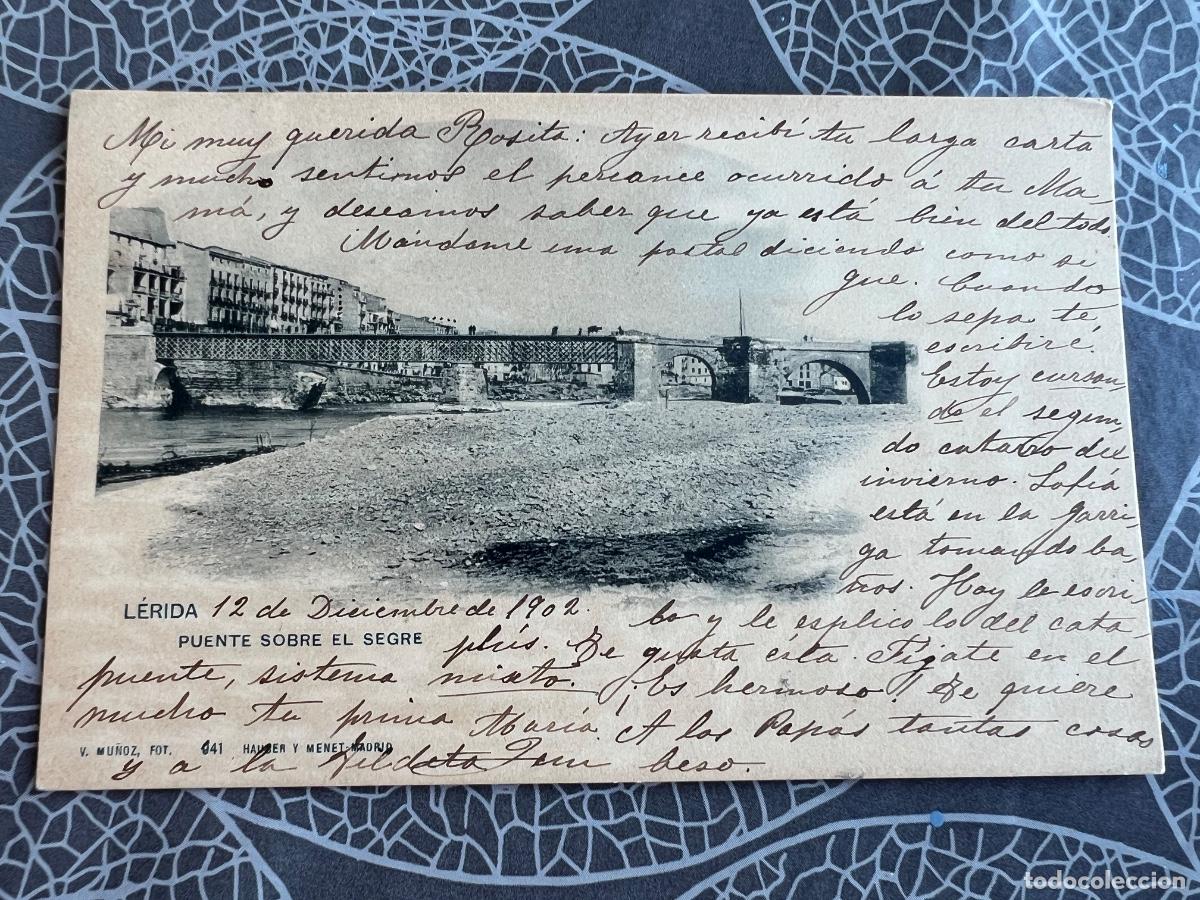 Mi muy querida Rosita: Ayer recibí tu larga carta
y mucho sentimos el percance ocurrido á tu Ma-
má, y deseamos saber que ya está bien del todo.
Mándame una postal diciendo como si
gue. Cuando
lo sepa te
escribiré.
Estoy cursan
do el segun
do catarro del
invierno. Sofía
está en la Garri-
ga tomando ba-
ños. Hoy le escri-
LÉRIDA 12 de Diciembre de 1902.
bo y le esplico lo del cata-
PUENTE SOBRE EL SEGRE
plús. Te gusta ésta. Fíjate en el
puente, sistema mixto. ¡Es hermoso! Te quiere
mucho tu prima María. A los Papás tantas cosas
V. MUÑOZ, FOT. 941 HAUSER Y MENET-MADRID
y a la beso.
todocoleccion